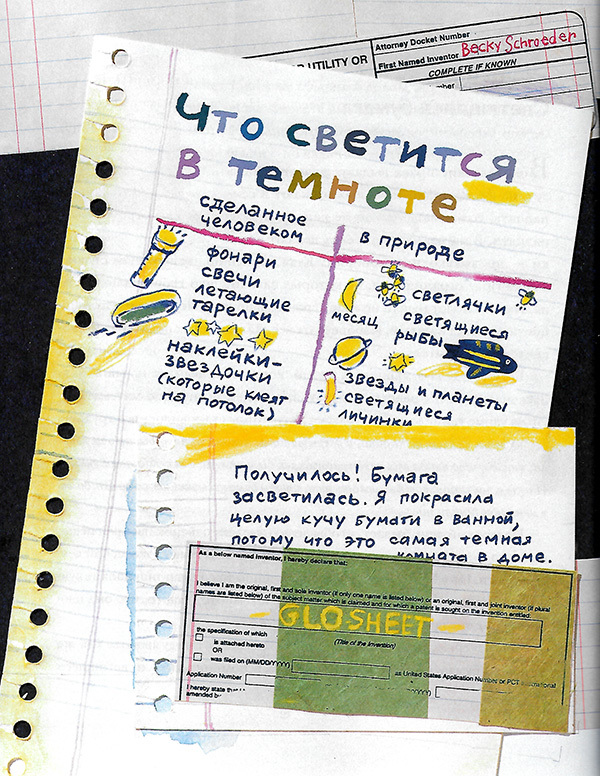 Attorney Docket Number
UTILITY OR
First Named Inventor Becky Schroeder
COMPLETE IF KNOWN
Что светится
в темноте
сделанное
человеком
фонари
свечи
летающие
тарелки
наклейки-
звездочки
(которые клеят
на потолок)
в природе
светлячки
месяц
светящиеся
рыбы
звезды и планеты
светящиеся
личинки
Получилось! Бумага
засветилась. Я покрасила
целую кучу бумаги в ванной,
потому что это самая темная
комната в доме.
As a below named Inventor, I hereby declare that:
I believe I am the original, first and sole inventor (if only one name is listed below) or an original, first and joint inventor (if plural
names are listed below) of the subject matter which is claimed and for which a patent is sought on the invention entitled:
GLOSHEET
the specification of which
(Title of the Invention)
is attached hereto
OR
was filed on (MM/DD/YYYY)
as United States Application Number or PCT International
Application Number
I hereby state
amended by